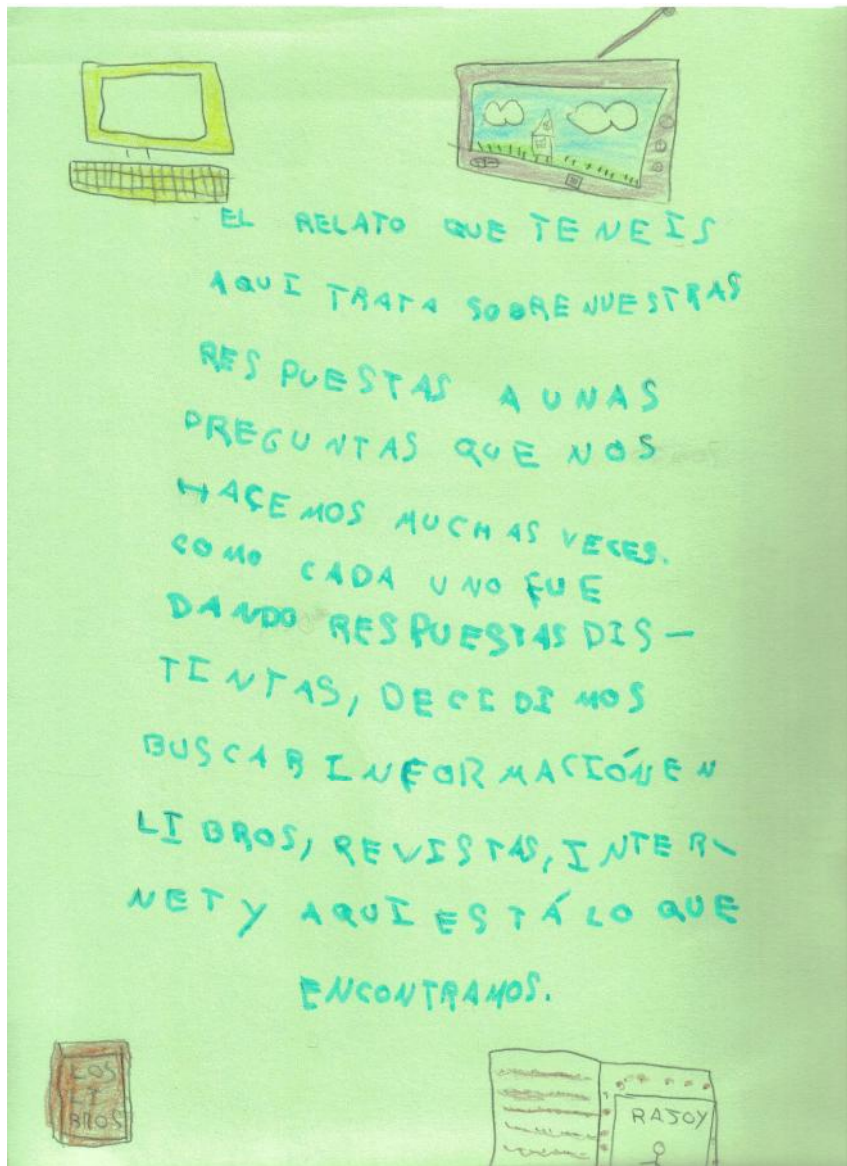 EL RELATO QUE TENEIS
AQUI TRATA SOBRE NUESTRAS
RESPUESTAS A UNAS
PREGUNTAS QUE NOS
HACEMOS MUCHAS VECES.
COMO CADA UNO FUE
DANDO RESPUESTAS DIS-
TINTAS, DECIDIMOS
BUSCAR INFORMACIÓN EN
LIBROS, REVISTAS, INTER-
NET Y AQUI ESTÁ LO QUE
ENCONTRAMOS.
LOS
LI
BROS
RAJOY